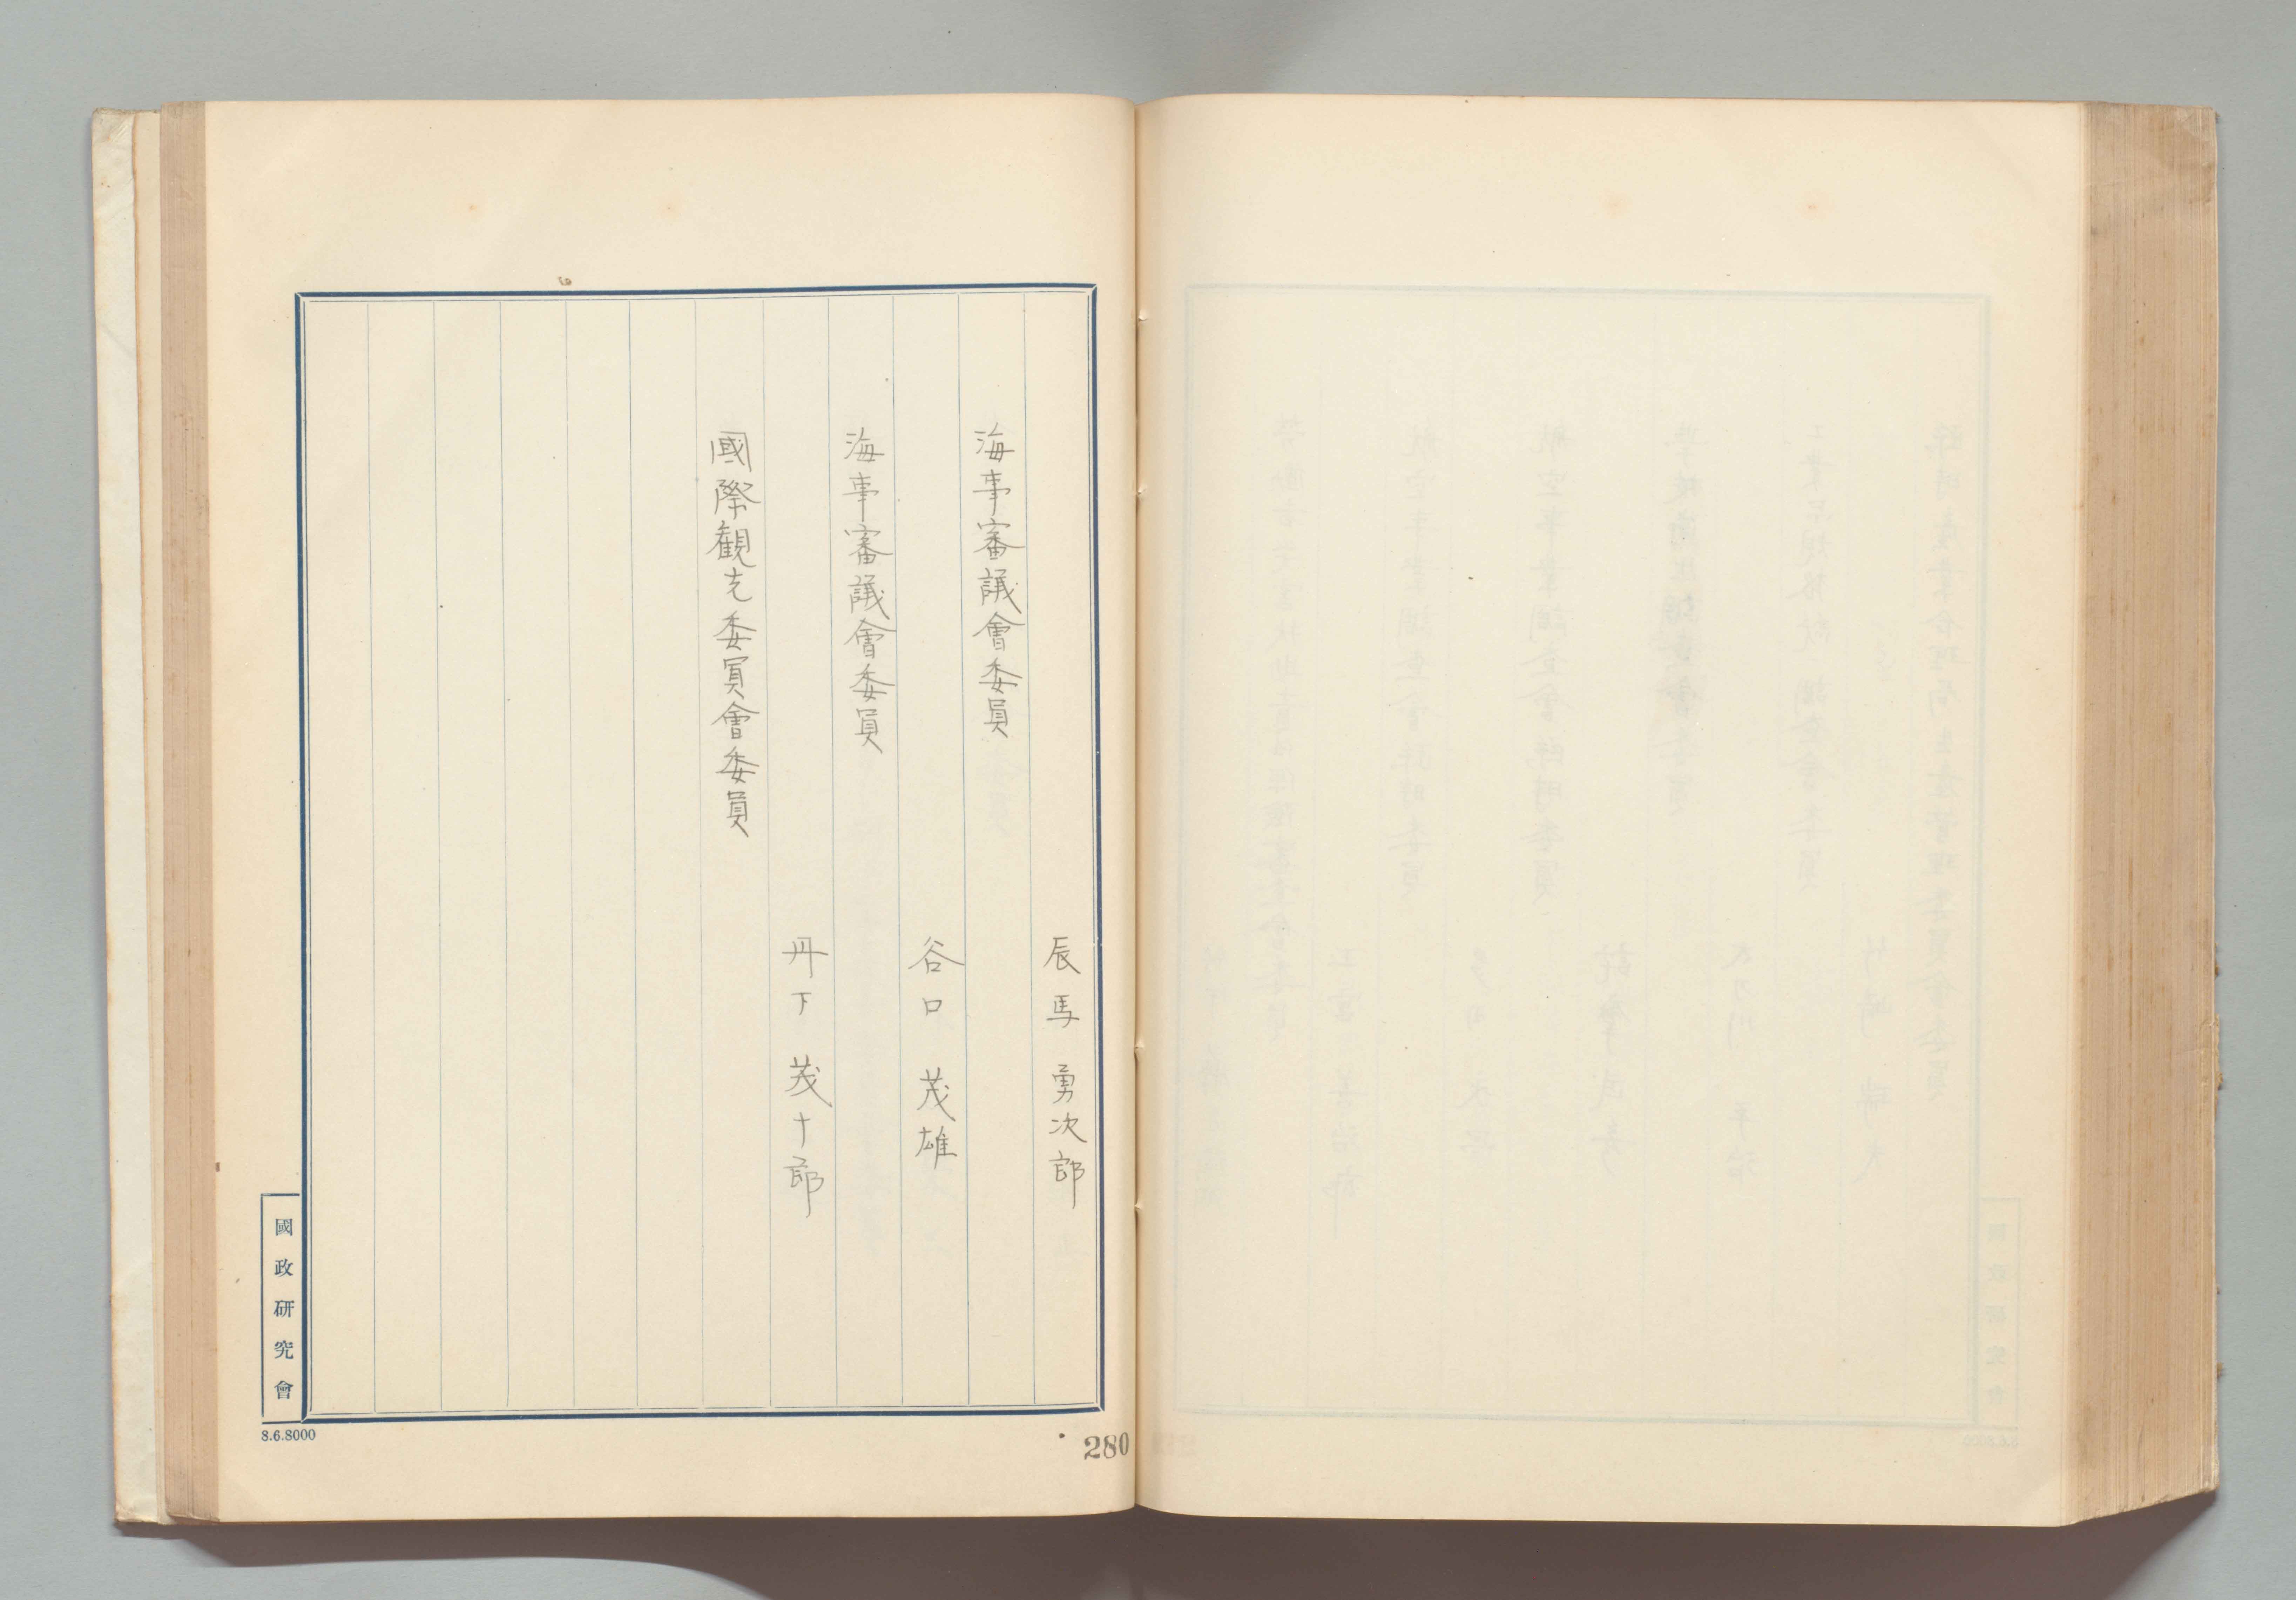 辰馬 勇次郎
海事審議會委員
谷口 茂雄
海事審議會委員
丹下 茂十郎
國際観光委員會委員
國政研究會
8.6.8000
280